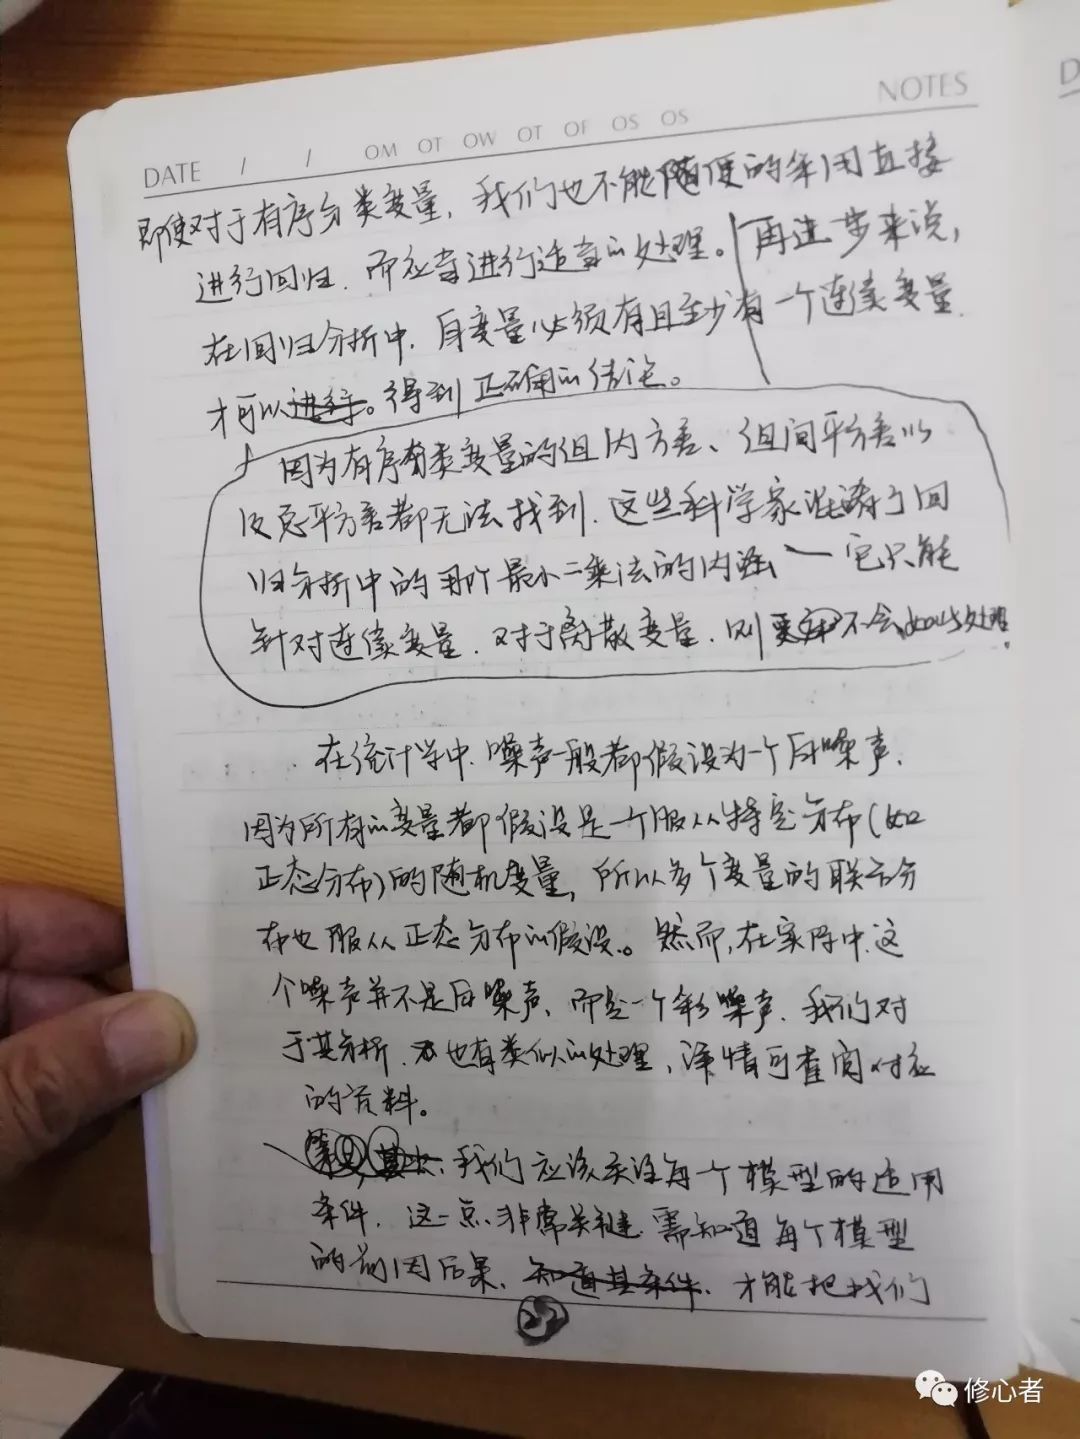 NOTES
DATE / / OM OT OW OT OF OS OS
即使对于有序分类变量，我们也不能随便的采用直接
进行回归，而应当进行适当的处理。再进步来说，
在回归分析中，自变量必须有且至少有一个连续变量，
才可以进行。得到正确的结论。
因为有序分类变量的组内方差、组间平方差以
及总平方差都无法找到，这些科学家混淆了回
归分析中的 最小二乘法的内涵——它只能
针对连续变量，对于离散变量，则 不会 处理
在统计学中，噪声一般都假设为一个白噪声，
因为所有的变量都假设是一个服从特定分布（如
正态分布）的随机变量，所以多个变量的联合分
布也服从正态分布的假设。然而，在实际中，这
个噪声并不是白噪声，而是一个彩噪声，我们对
于其分析，也有类似的处理，详情可查阅对应
的资料。
我们应该关注每个模型的适用
条件，这一点非常关键，需知道每个模型
的前因后果，知道其条件，才能把我们
22
修心者